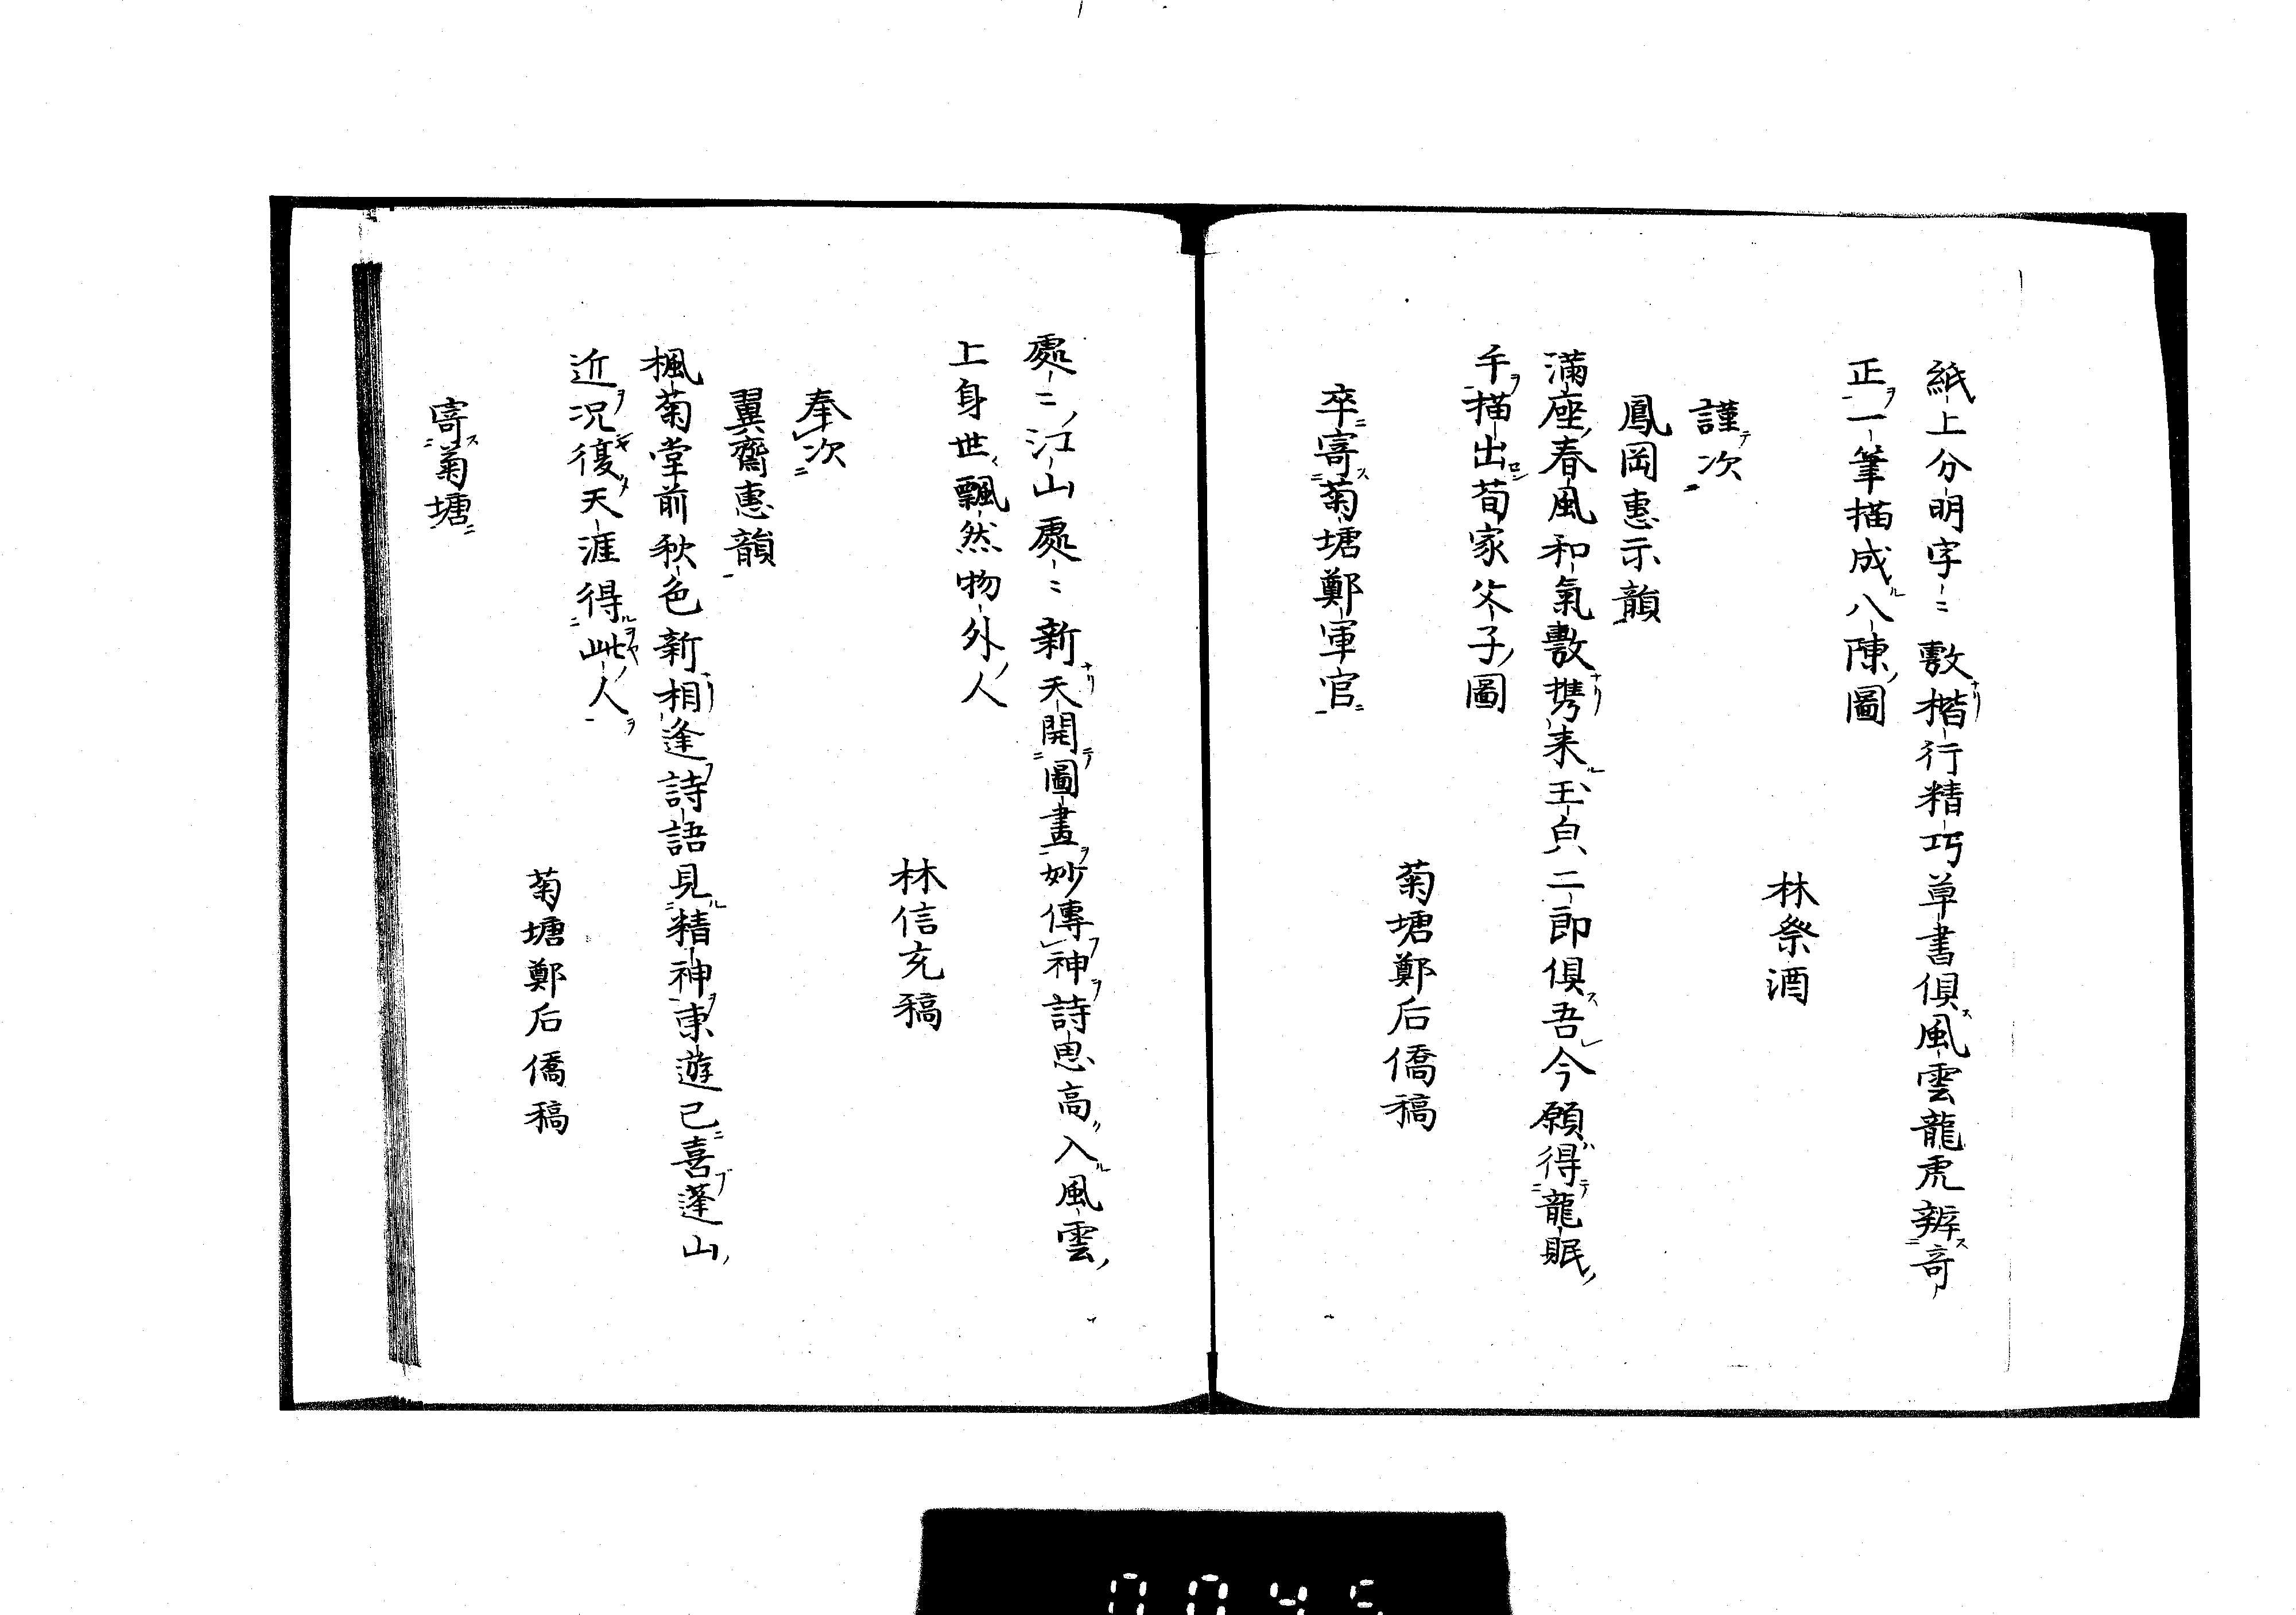 紙上分明字〻敷楷行精巧草書俱風雲龍虎辨奇
正一筆描成八陳圖
林祭酒
謹次
鳳岡惠示韻
滿座春風和氣敷携来玉皃二郎俱吾今願得龍眠
手描出荀家父子圖
菊塘鄭后僑稿
卒寄菊塘鄭軍官
處〻江山處〻新天開圖畫妙傳神詩思高入風雲
上身世飄然物外人
林信充稿
奉次
翼齋惠韻
楓菊堂前秋色新相逢詩語見精神東遊已喜蓬山
近况復天涯得此人
菊塘鄭后僑稿
寄菊塘